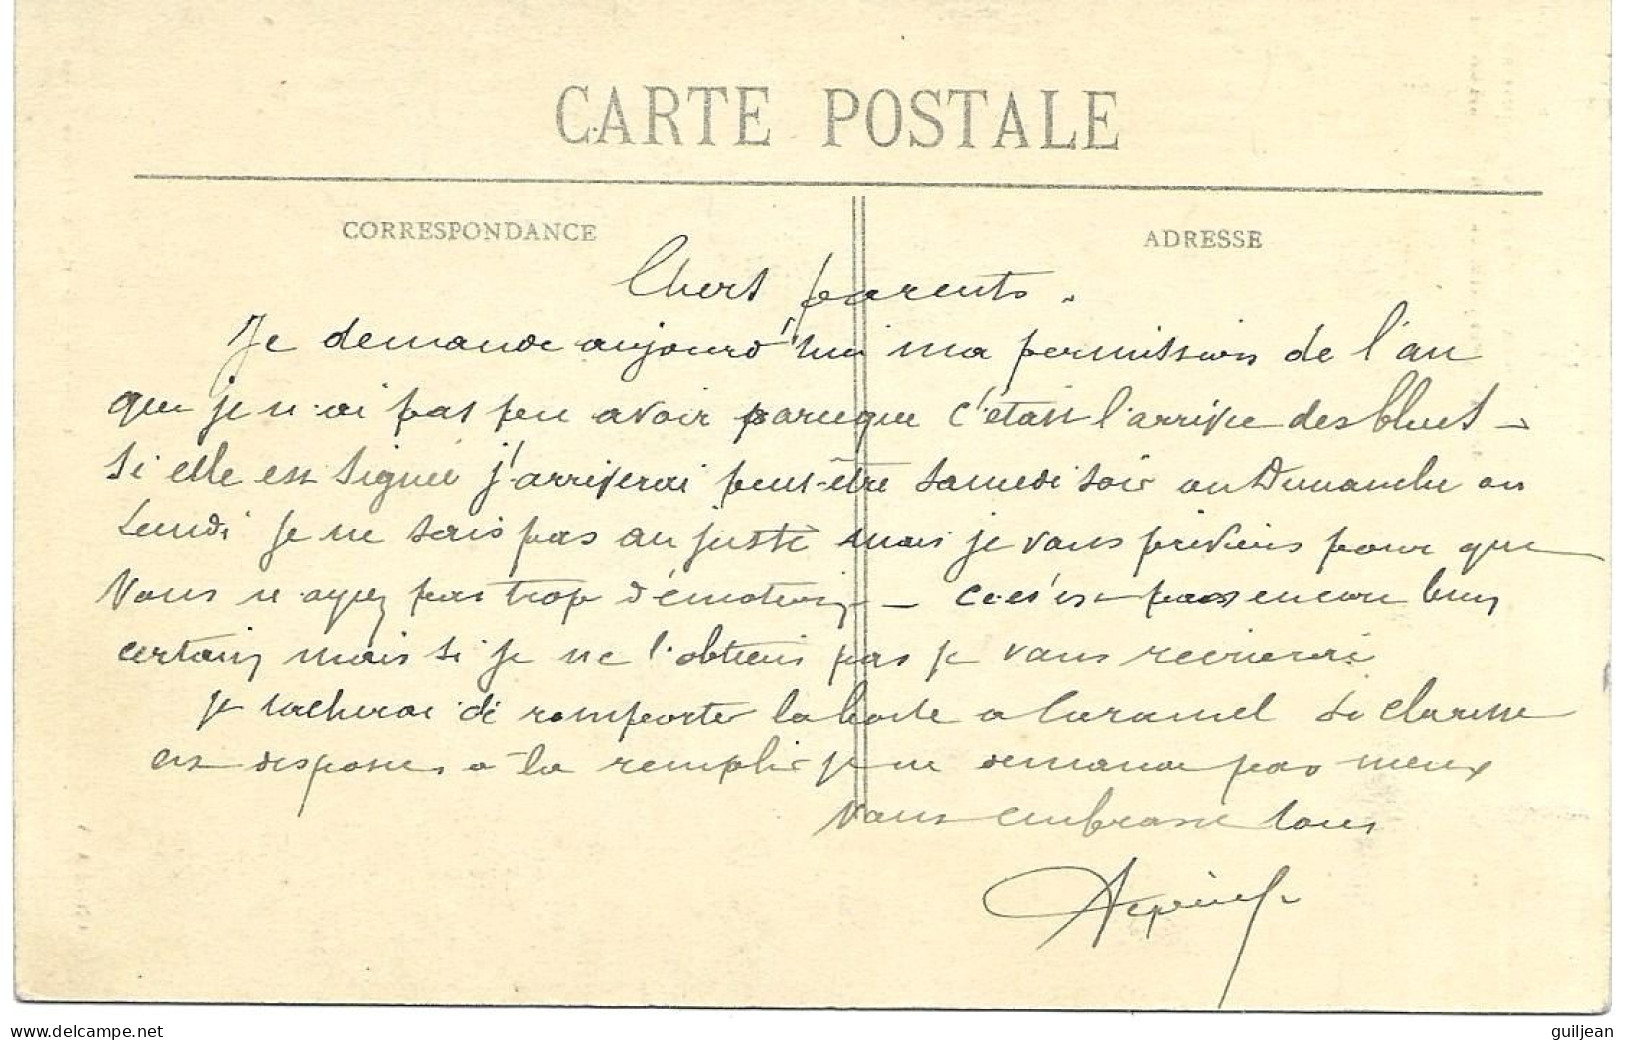 CARTE POSTALE
CORRESPONDANCE
ADRESSE
Chers parents.
Je demande aujourd'hui ma permission de l'an
que je n'ai pas peu avoir parceque c'était l'arrivée des bleus –
Si elle est signée j'arriverai peut-être samedi soir ou Dimanche ou
Lundi je ne sais pas au juste mais je vous préviens pour que
Vous n'ayez pas trop d'émotion – ce n'est pas encore bien
certain mais si je ne l'obtiens pas je vous reécrirai
je tacherai de remporter la boite a Caramel si Clarisse
est disposée a la remplir je ne demande pas mieux
Vous embrasse tous
www.delcampe.net
guiljean